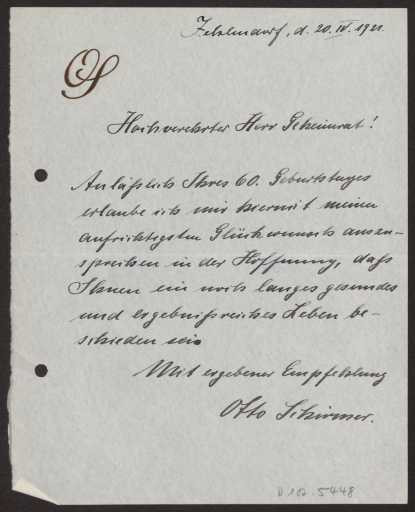 Zehlendorf, d. 20. IV. 1921
OS
Hochverehrter Herr Geheimrat!
Anläßlich Ihres 60. Geburtstages
erlaube ich mir hiermit meinen
aufrichtigsten Glückwunsch auszu-
sprechen in der Hoffnung, daß
Ihnen ein noch langes gesundes
und ergebnißreiches Leben be-
schieden sei.
Mit ergebener Empfehlung
Otto Schirmer.
D 102. 5448